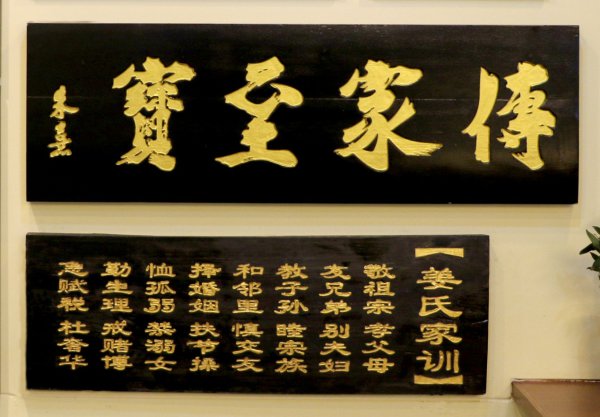 傳家至寶
朱熹
【姜氏家训】
敬祖宗 孝父母
友兄弟 别夫妇
教子孙 睦宗族
和邻里 慎交友
择婚姻 扶节操
恤孤弱 禁溺女
勤生理 戒赌博
急赋税 杜奢华